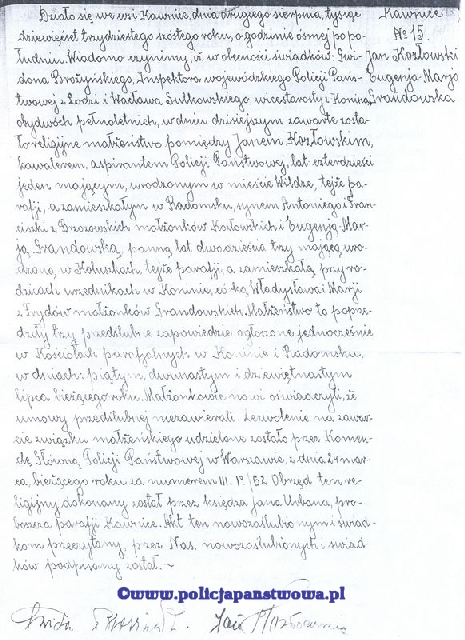 Działo się we wsi Kawnice, dnia drugiego sierpnia, tysiąc
dziewięćset trzydziestego szóstego roku, o godzinie ósmej po po-
łudniu. Wiadomo czynimy, iż w obecności świadków:
Inspektora wojewódzkiego Policji Pańs-
twowej z Łodzi i Wacława wicestarosty z Konina,
obydwóch pełnoletnich, w dniu dzisiejszym zawarte zosta-
ło religijne małżeństwo pomiędzy Janem Kozłowskim,
kawalerem, aspirantem Policji Państwowej, lat czterdzieści
jeden mającym, urodzonym w mieście tejże pa-
rafji, a zamieszkałym w Radomsku, synem Antoniego i Fran-
ciszki z małżonków Kozłowskich i Eugenją-Mar-
ją Grandowską, panną, lat dwadzieścia trzy mającą uro-
dzoną w Koluszkach, tejże parafji, a zamieszkałą przy ro-
dzicach urzędnikach w Koninie, córką Władysława i Marji
z małżonków Grandowskich. Małżeństwo to poprze-
dziły trzy przedślubne zapowiedzie ogłoszone jednocześnie
w Kościołach parafjalnych w Koninie i Radomsku,
w dniach: piątym, dwunastym i dziewiętnastym
lipca bieżącego roku. Małżonkowie nowi oświadczyli, że
umowy przedślubnej niezawierali. Zezwolenie na zawar-
cie związku małżeńskiego udzielone zostało przez Komen-
dę Główną Policji Państwowej w Warszawie, z dnia 24 mar-
ca, bieżącego roku za numerem Obrzęd ten re-
ligijny dokonany został przez księdza Jana Urbana, pro-
boszcza parafji Kawnice. Akt ten nowozaślubionym i świad-
kom przeczytany, przez Nas, nowozaślubionych i świad-
ków podpisany został.
Kawnice
No 15
Jan Kozłowski
Eugenja-Marja
Grandowska
©www.policjapanstwowa.pl